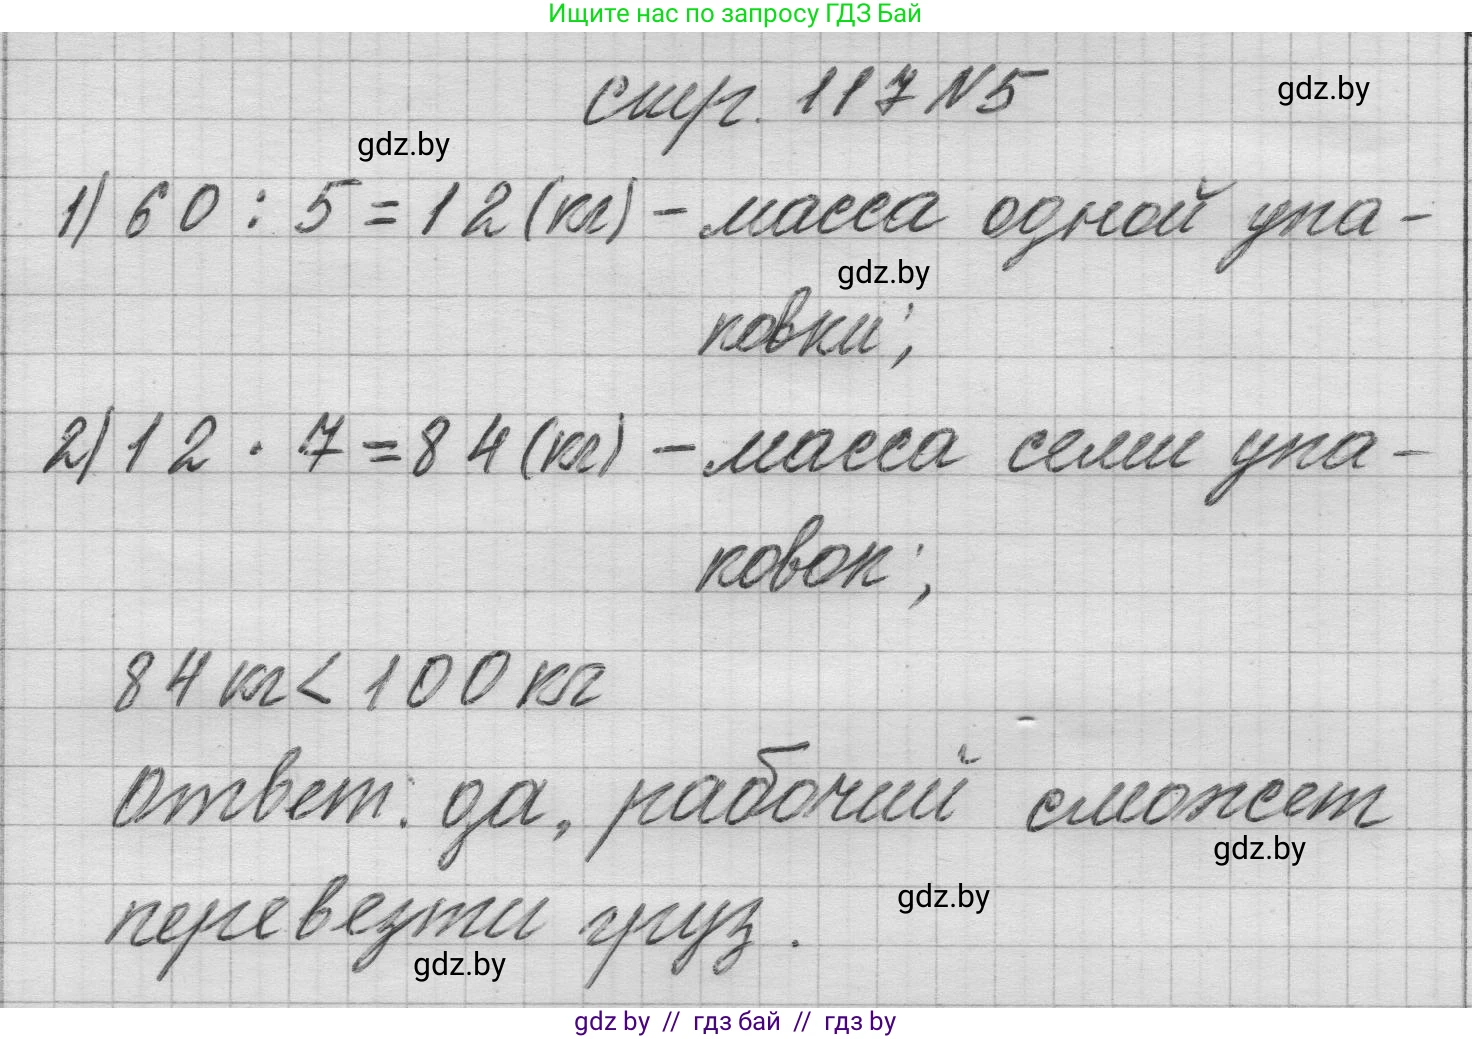 Ищите нас по запросу ГДЗ Бай
стр. 117 N5
gdz.by
gdz.by
1) 60 : 5 = 12 (кг) – масса одной упа-
gdz.by
ковки;
2) 12 · 7 = 84 (кг) – масса семи упа-
ковок;
84 кг < 100 кг
Ответ: да, рабочий сможет
gdz.by
gdz.by
перевезти груз.
gdz.by
gdz by // гдз бай // гдз by